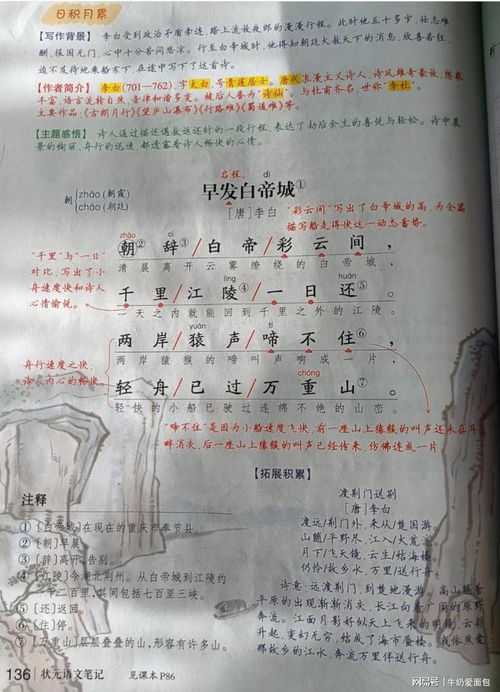 日积月累
【写作背景】 李白受到政治矛盾牵连,踏上流放夜郎的漫漫行程。此时他五十多岁,壮志难
酬,报国无门,心中十分苦闷悲凉。行至白帝城时,他得知朝廷大赦天下的消息,欣喜若狂,
迫不及待地乘船东下,在途中写下了这首诗。
【作者简介】 李白(701—762),字太白,号青莲居士。唐代浪漫主义诗人,诗风雄奇豪放,想象
丰富,语言流转自然,音律和谐多变。被后人誉为“诗仙”。与杜甫齐名,世称“李杜”。
主要作品:《古朗月行》《望庐山瀑布》《行路难》《蜀道难》等。
【主题感悟】 诗人通过描述遇赦返还时的一段行程,表达了劫后余生的喜悦与轻松。诗中晨
景的绚丽,舟行的迅速,都透露着诗人畅快的心情。
启程。 dì
朝 zhāo(朝霞)
cháo(朝廷)
早发白帝城①
[唐]李白
“彩云间”写出了白帝城的高,为全篇
描写船走得快这一动态蓄势。
zhāo cí
朝② 辞③/白 帝/彩 云 间,
清晨离开云雾缭绕的白帝城,
“千里”与“一日”
对比,写出了小
舟速度快和诗人
心情愉悦。
líng huán
千 里/江 陵④/一 日 还⑤。
一天之内就能回到千里之外的江陵。
yuán tí
两 岸 猿 声/啼 不 住⑥,
两岸猿猴的啼叫声响成一片,
舟行速度之快;
诗人内心的畅快。
chóng
轻 舟/已 过/万 重 山⑦。
轻快的小船已驶过连绵不绝的山峦。
“啼不住”是因为小船速度飞快,前一座山上猿猴的叫声还未在耳
畔消失,后一座山上猿猴的叫声已经传来,仿佛连成一片
【拓展积累】
渡荆门送别
[唐]李白
渡远/荆门外,来从/楚国游。
山随/平野尽,江入/大荒流。
月下/飞天镜,云生/结海楼。
仍怜/故乡水,万里/送行舟。
诗意:远渡荆门,到楚地漫游。高山随着
平原的出现渐渐消失,长江向着广阔的原野
奔流。江面月影好似天上飞来的明镜,云彩
升起,变幻无穷,结成了海市蜃楼。我依然爱
那故乡的江水,奔流万里伴送行舟。
注释
①〔白帝城〕在现在的重庆市奉节县。
②〔朝〕早晨。
③〔辞〕离开,告别。
④〔江陵〕今湖北荆州。从白帝城到江陵约
一千二百里,其间包括七百里三峡。
⑤〔还〕返回。
⑥〔住〕停。
⑦〔万重山〕层层叠叠的山,形容有许多山。
136 状元语文笔记 见课本P86
网易号 | 牛奶爱面包